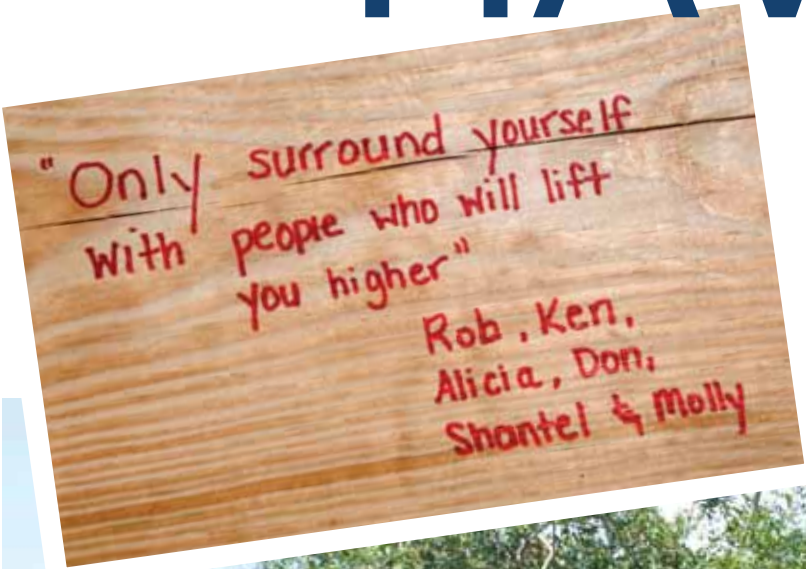 "Only surround yourself
with people who will lift
you higher"
Rob, Ken,
Alicia, Don,
Shantel & Molly